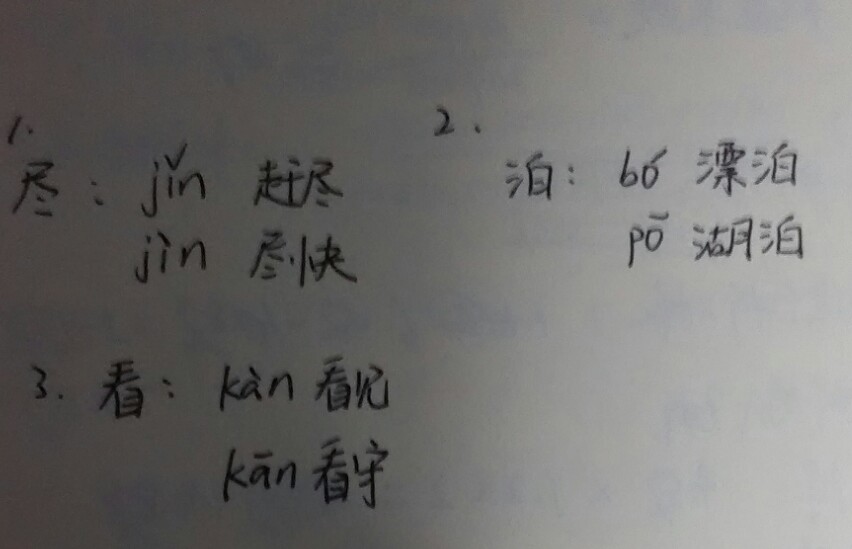 1.
尽：jǐn 赶尽
jìn 尽快
2.
泊：bó 漂泊
pō 湖泊
3. 看：kàn 看见
kān 看守